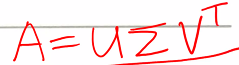 A = U Σ V^T